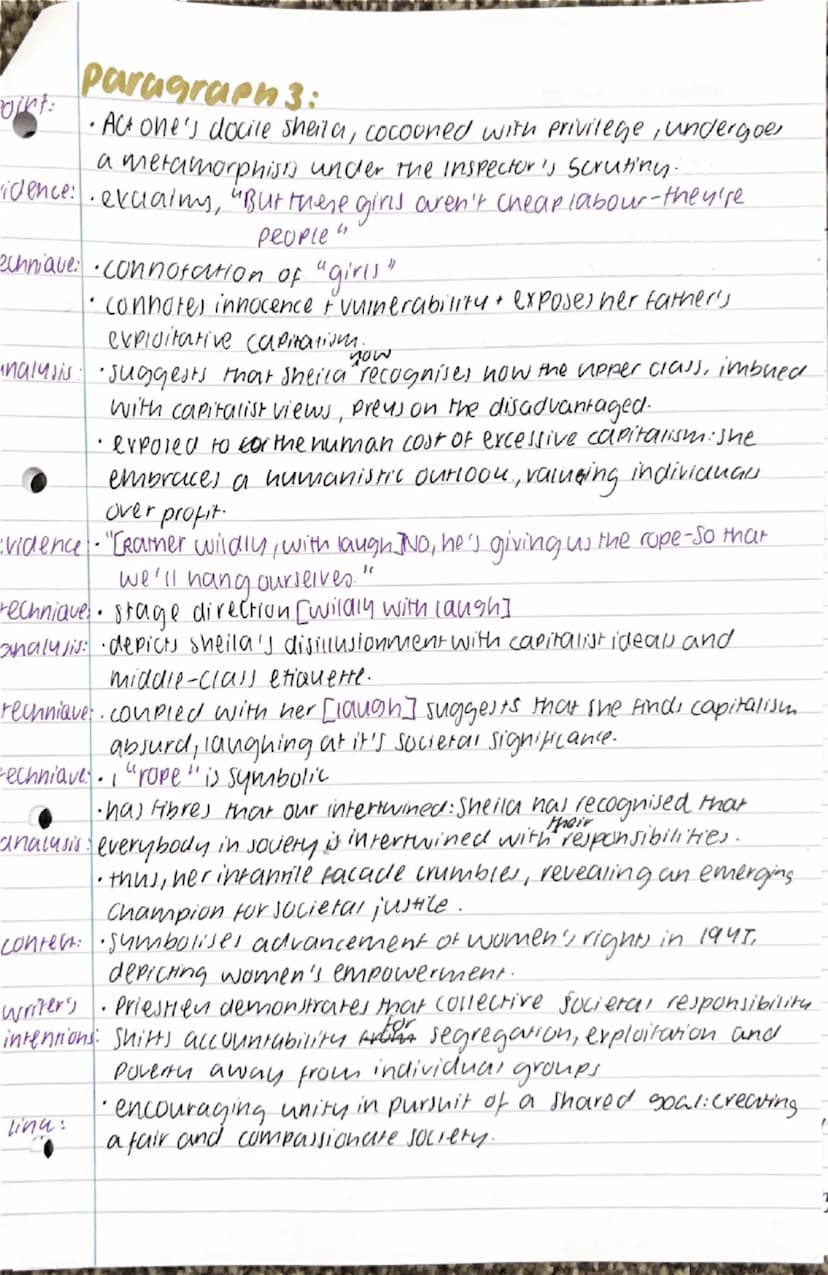 Paragraph 3:
oint:
· Act one's docile sheila, cocooned with privilege, undergoes
a metamorphisis under the Inspector's scrutiny.
idence: · exclaims, "But these girls aren't cheap labour-they're
people"
echnique: · connotation of "girls"
· connotes innocence + vulnerability + exposes her father's
exploitative capitalism.
nalysis: · suggests that sheila now recognises how the upper class, imbued
with capitalist views, preys on the disadvantaged.
· exposed to the human cost of excessive capitalism: she
embraces a humanistic outlook, valueing individuals
over profit.
vidence · "[Rather wildly, with laugh] No, he's giving us the rope-so that
we'll hang ourselves."
technique: · stage direction [wildly with laugh]
analysis: · depicts sheila's disillusionment with capitalist ideals and
middle-class etiquette.
technique: · coupled with her [laugh] suggests that she finds capitalism
absurd, laughing at it's societal significance.
echnique: · "rope" is symbolic
· has fibres that our intertwined: Sheila has recognised that
analysis: everybody in society is intertwined with their responsibilities.
· thus, her infantile facade crumbles, revealing an emerging
champion for societal justice.
context: · symbolises advancement of women's rights in 1945,
depicting women's empowerment.
writer's · Priestley demonstrates that collective societal responsibility
intentions: shifts accountability for segregation, exploitation and
poverty away from individual groups
· encouraging unity in pursuit of a shared goal: creating
link: a fair and compassionate society.